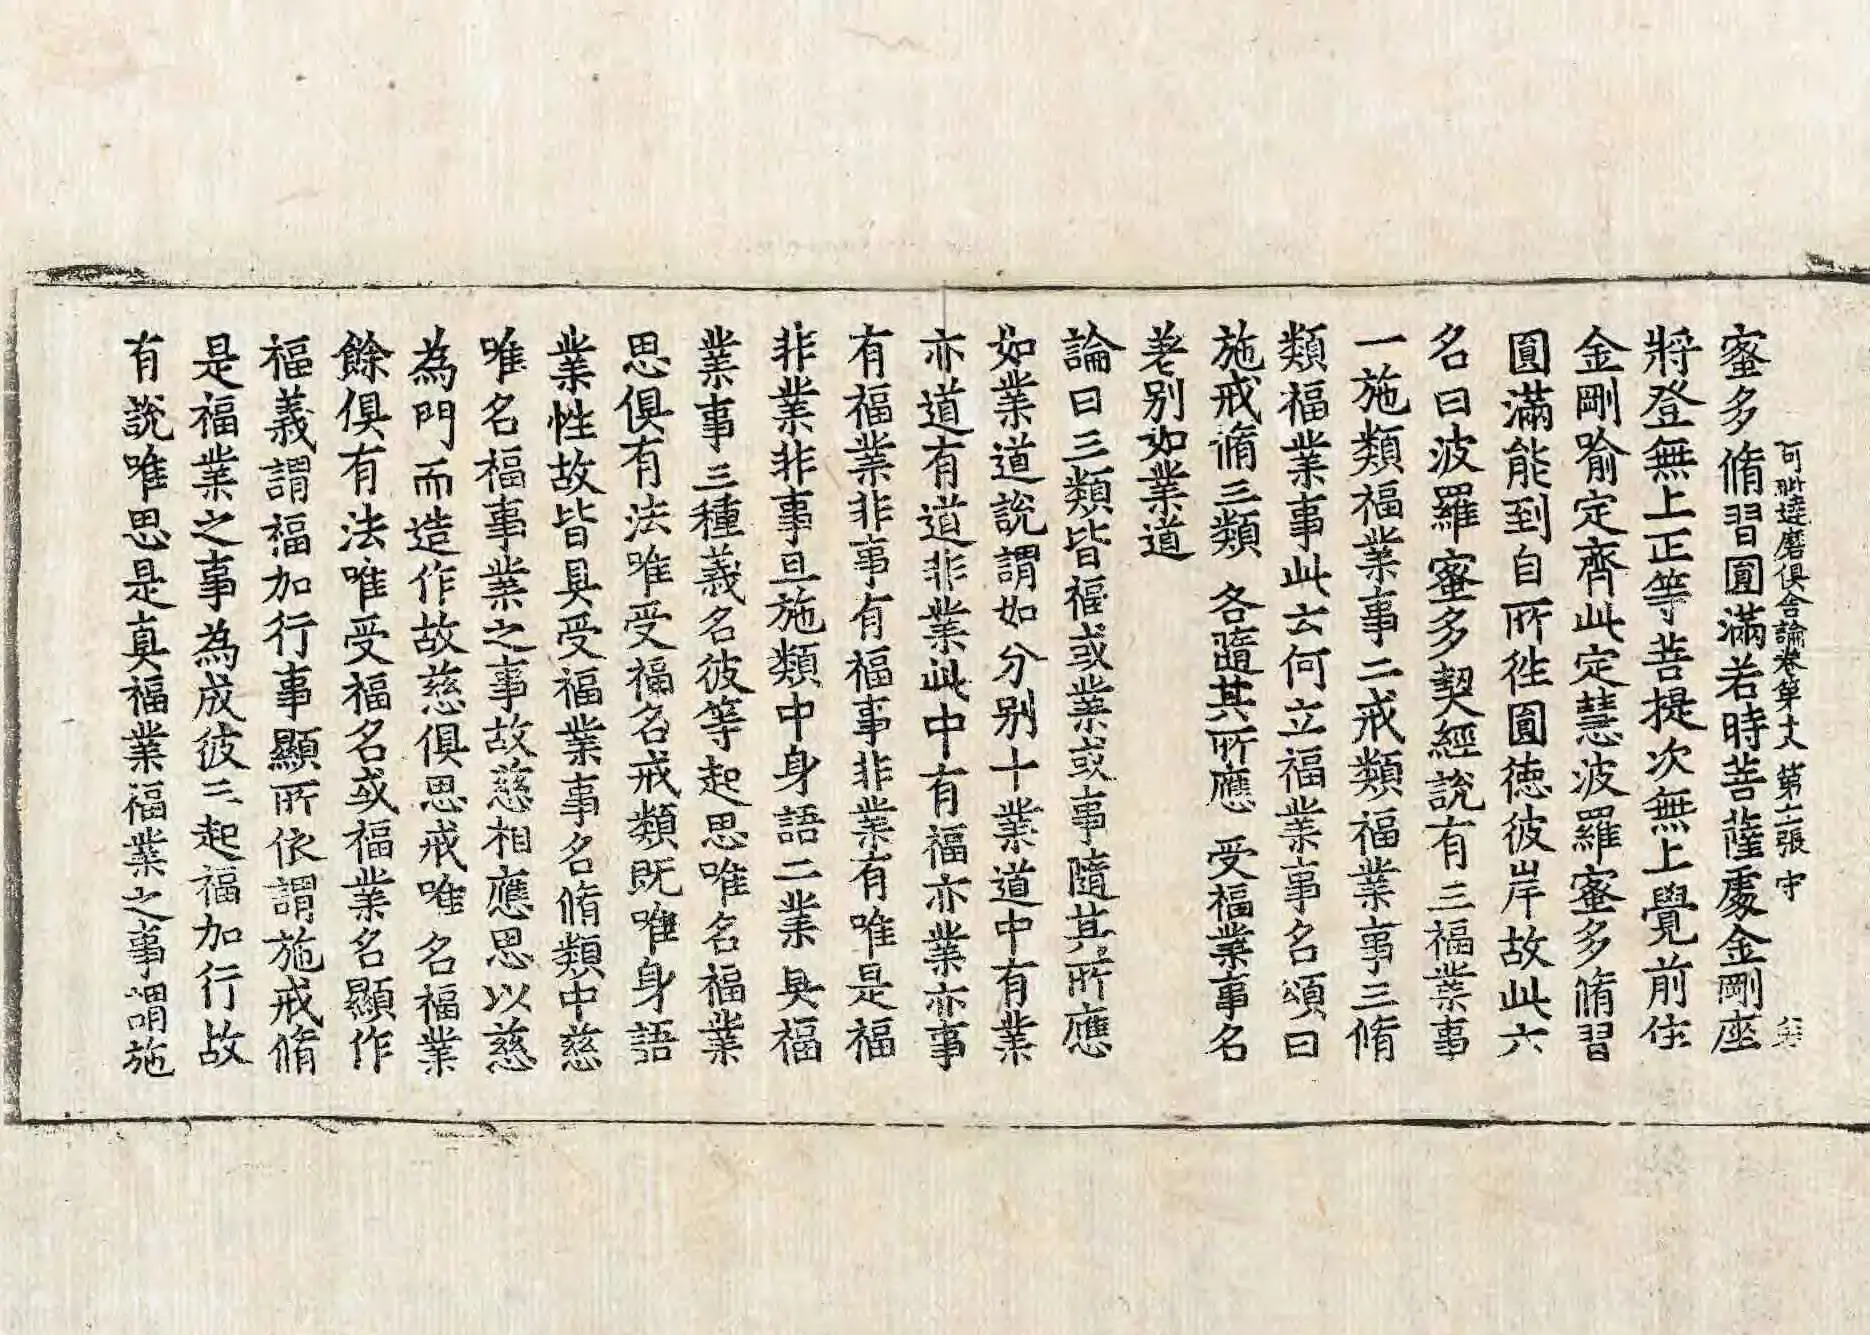 阿毗達磨俱舍論卷第十八 第二張 守
蜜多脩習圓滿若時菩薩處金剛座
將登無上正等菩提次無上覺前住
金剛喻定齊此定慧波羅蜜多脩習
圓滿能到自所往圓德彼岸故此六
名曰波羅蜜多契經說有三福業事
一施類福業事二戒類福業事三脩
類福業事此云何立福業事名頌曰
施戒脩三類 各隨其所應 受福業事名
差別如業道
論曰三類皆福或業或事隨其所應
如業道說謂如分別十業道中有業
亦道有道非業此中有福亦業亦事
有福業非事有福事非業有唯是福
非業非事且施類中身語二業具福
業事三種義名彼等起思唯名福業
思俱有法唯受福名戒類既唯身語
業性故皆具受福業事名脩類中慈
唯名福事業之事故慈相應思以慈
為門而造作故慈俱思戒唯名福業
餘俱有法唯受福名或福業名顯作
福義謂福加行事顯所依謂施戒脩
是福業之事為成彼三起福加行故
有說唯思是真福業福業之事謂施